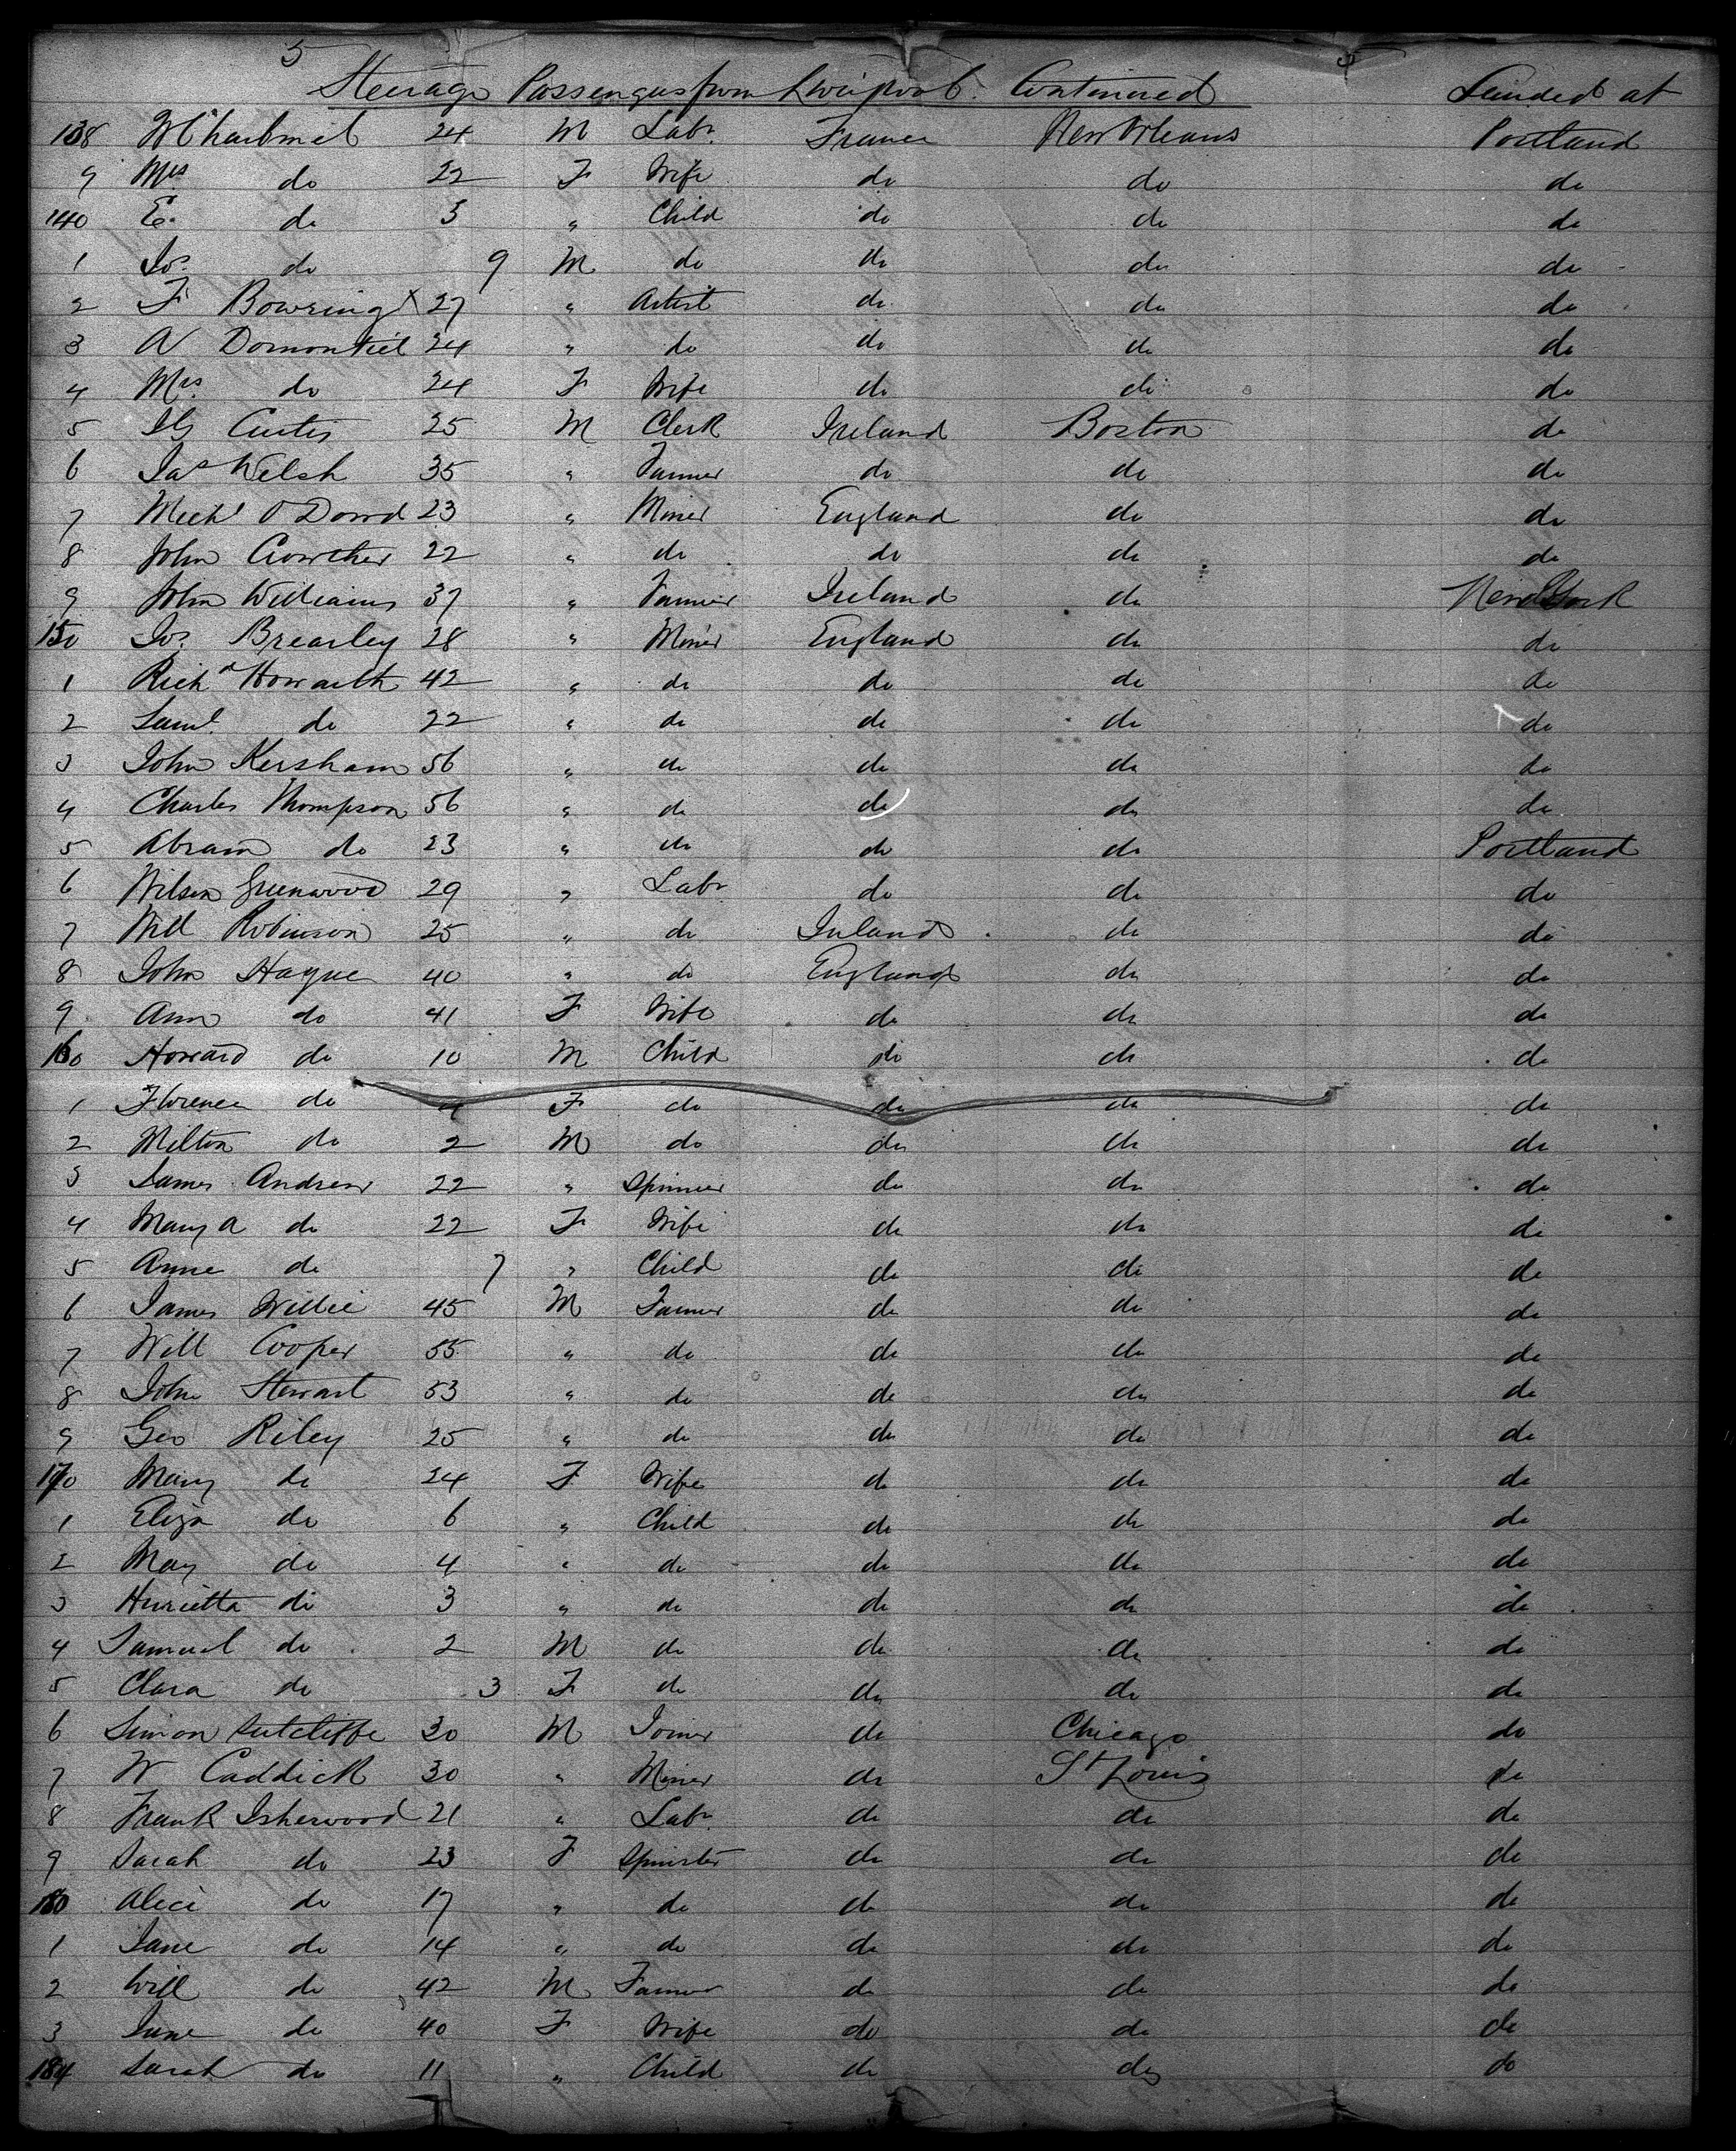 5
Steerage Passengers from Liverpool Continued Landed at
138 W Charbmel 24 M Labr. France New Orleans Portland
9 Mrs do 22 F Wife do do do
140 E. do 3 " Child do do do
1 Jos. do 9 M do do do do
2 F Bowring X 27 " Artist do do do
3 A Domontiel 24 " do do do do
4 Mrs. do 24 F Wife do do do
5 Curtis 25 M Clerk Ireland Boston do
6 Jas Welsh 35 " Farmer do do do
7 Michl O Dowd 23 " Miner England do do
8 John Crowther 22 " do do do do
9 John Williams 37 " Farmer Ireland do New York
150 Jos. Brearley 28 " Miner England do do
1 Richd Howarth 42 " do do do do
2 Saml. do 22 " do do do do
3 John Kersham 56 " do do do do
4 Charles Thompson 56 " do do do do
5 Abram do 23 " do do do Portland
6 Wilson Greenwood 29 " Labr do do do
7 Will Robinson 25 " do Ireland do do
8 John Hague 40 " do England do do
9 Ann do 41 F Wife do do do
160 Howard do 10 M Child do do do
1 Florence do 4 F do do do do
2 Milton do 2 M do do do do
3 James Andrew 22 " Spinner do do do
4 Mary A do 22 F Wife do do do
5 Anne do 7 " Child do do do
6 James Willie 45 M Farmer do do do
7 Will Cooper 55 " do do do do
8 John Stewart 53 " do do do do
9 Geo Riley 25 " do do do do
170 Mary do 24 F Wife do do do
1 Eliza do 6 " Child do do do
2 May do 4 " do do do do
3 Henrietta do 3 " do do do do
4 Samuel do 2 M do do do do
5 Clara do 3 F do do do do
6 Simon Sutcliffe 30 M Joiner do Chicago do
7 W Caddick 30 " Miner do St Louis do
8 Frank Isherwood 21 " Labr do do do
9 Sarah do 23 F Spinster do do do
180 Alice do 17 " do do do do
1 Jane do 14 " do do do do
2 Will do 42 M Farmer do do do
3 Jane do 40 F Wife do do do
184 Sarah do 11 " Child do do do